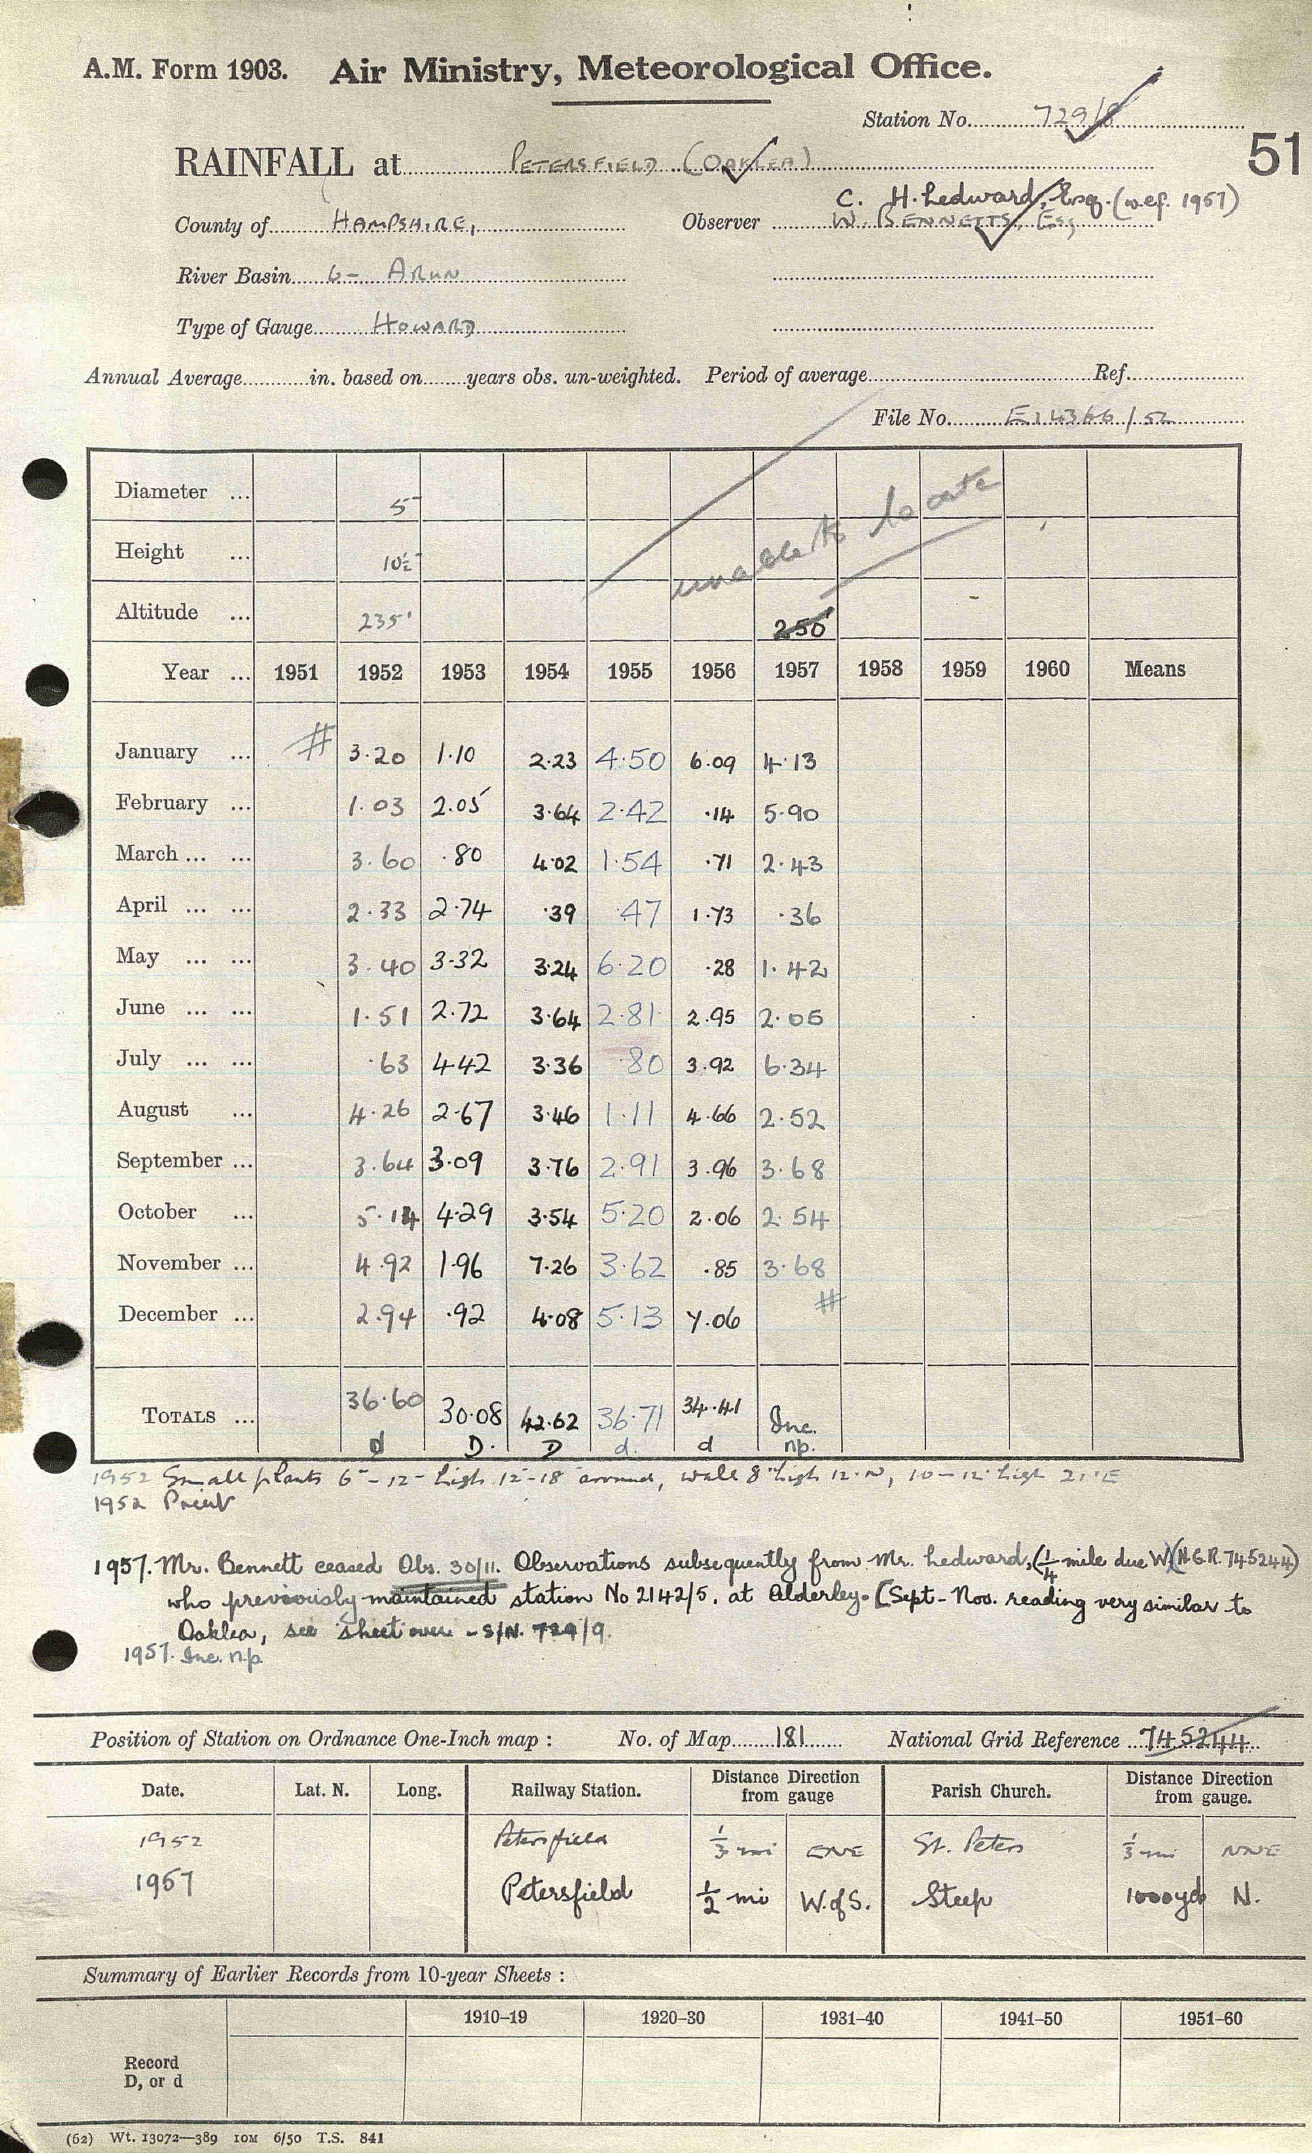 A.M. Form 1903. Air Ministry, Meteorological Office.
Station No. 729/8
51
RAINFALL at PETERSFIELD (OAKLEA)
C. H. Ledward, Esq. (w.e.f. 1957)
County of HAMPSHIRE, Observer W. BENNETTS, Esq
River Basin 6- ARUN
Type of Gauge HOWARD
Annual Average in. based on years obs. un-weighted. Period of average Ref.
File No. E14366/52
Diameter ... 5
unable to locate
Height ... 10½
Altitude ... 235' 250'
Year ... 1951 1952 1953 1954 1955 1956 1957 1958 1959 1960 Means
January ... # 3.20 1.10 2.23 4.50 6.09 4.13
February ... 1.03 2.05 3.64 2.42 .14 5.90
March ... ... 3.60 .80 4.02 1.54 .71 2.43
April ... ... 2.33 2.74 .39 .47 1.73 .36
May ... ... 3.40 3.32 3.24 6.20 .28 1.42
June ... ... 1.51 2.72 3.64 2.81 2.95 2.05
July ... ... .63 4.42 3.36 .80 3.92 6.34
August ... 4.26 2.67 3.46 1.11 4.66 2.52
September ... 3.64 3.09 3.76 2.91 3.96 3.68
October ... 5.14 4.29 3.54 5.20 2.06 2.54
November ... 4.92 1.96 7.26 3.62 .85 3.68
December ... 2.94 .92 4.08 5.13 7.06 #
TOTALS ... 36.60 30.08 42.62 36.71 34.41 Inc.
d D. D d. d n.p.
1952 Small plants 6"-12" high 12"-18" around, wall 8' high 12' N, 10-12' high 21' E
1952 Print
1957. Mr. Bennett ceased Obs. 30/11. Observations subsequently from Mr. Ledward, (¼ mile due W) (N.G.R. 745244)
who previously maintained station No 2142/5. at Alderley. (Sept - Nov. reading very similar to
Oaklea, see sheet over - S/N. 729/9.
1957. Inc. n.p.
Position of Station on Ordnance One-Inch map : No. of Map 181 National Grid Reference 745244
Date. Lat. N. Long. Railway Station. Distance Direction from gauge Parish Church. Distance Direction from gauge.
1952 Petersfield ⅓ mi ENE St. Peters ⅓ mi NNE
1957 Petersfield ½ mi W. of S. Steep 1000yd N.
Summary of Earlier Records from 10-year Sheets :
1910-19 1920-30 1931-40 1941-50 1951-60
Record
D, or d
(62) Wt. 13072—389 10M 6/50 T.S. 841